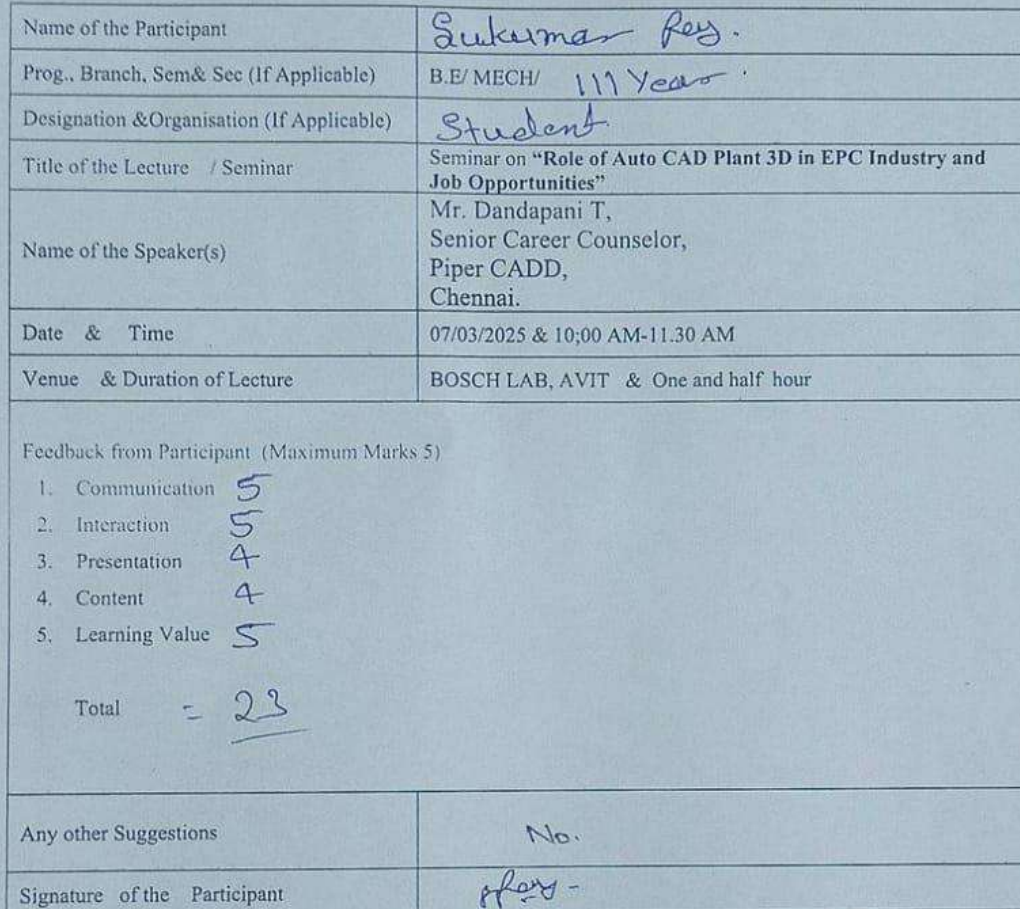 Name of the Participant Sukumar Roy.
Prog., Branch, Sem& Sec (If Applicable) B.E/ MECH/ 111 Year
Designation &Organisation (If Applicable) Student
Title of the Lecture / Seminar Seminar on “Role of Auto CAD Plant 3D in EPC Industry and
Job Opportunities”
Name of the Speaker(s) Mr. Dandapani T,
Senior Career Counselor,
Piper CADD,
Chennai.
Date & Time 07/03/2025 & 10;00 AM-11.30 AM
Venue & Duration of Lecture BOSCH LAB, AVIT & One and half hour
Feedback from Participant (Maximum Marks 5)
1. Communication 5
2. Interaction 5
3. Presentation 4
4. Content 4
5. Learning Value 5
Total = 23
Any other Suggestions No.
Signature of the Participant